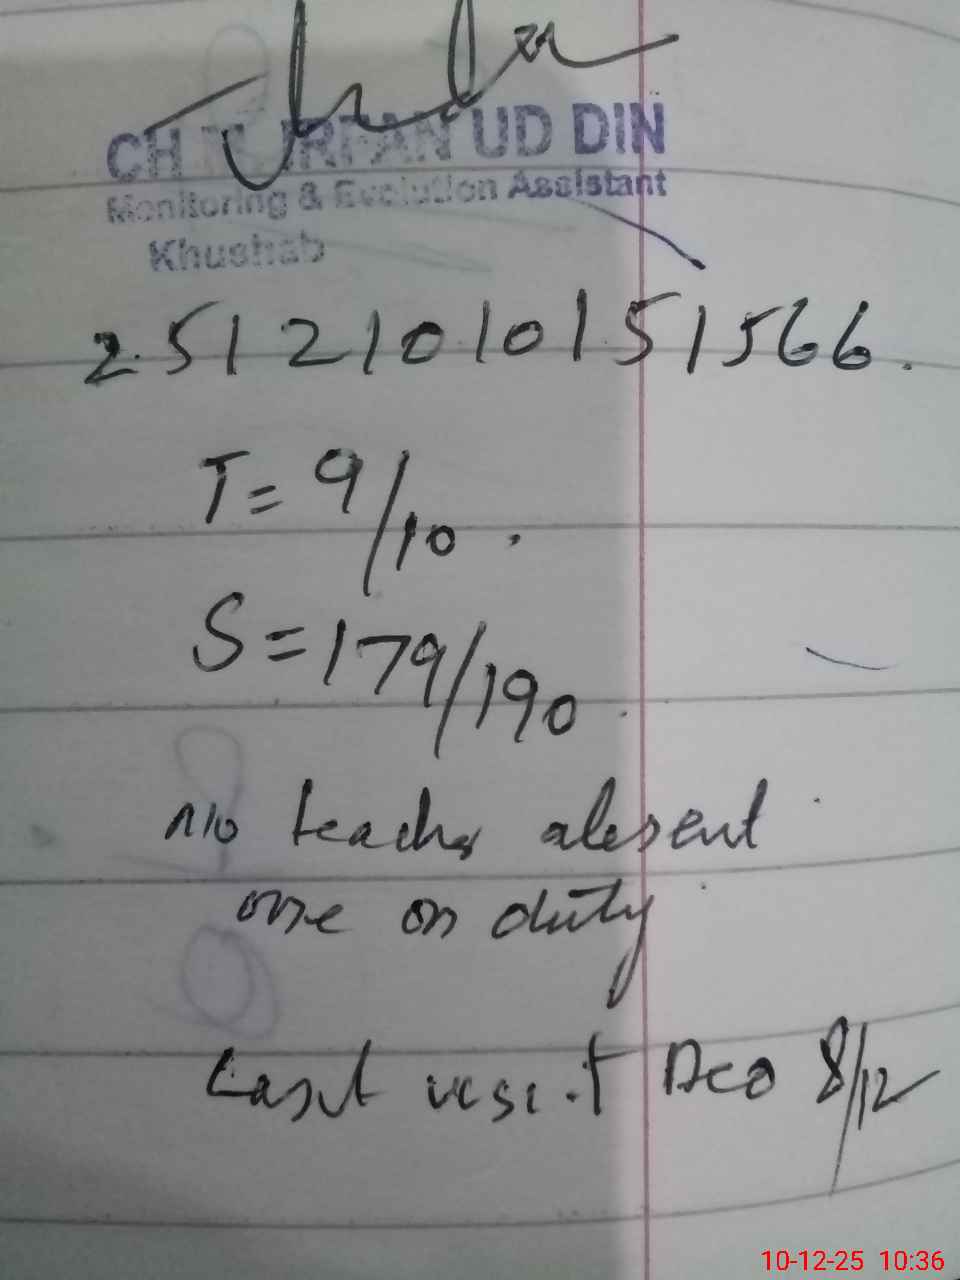 CH M. IRFAN UD DIN
Monitoring & Evolution Assistant
Khushab
25121010151566.
T = 9/10.
S = 179/190.
no teacher absent
one on duty
Last visit Deo 8/12
10-12-25 10:36